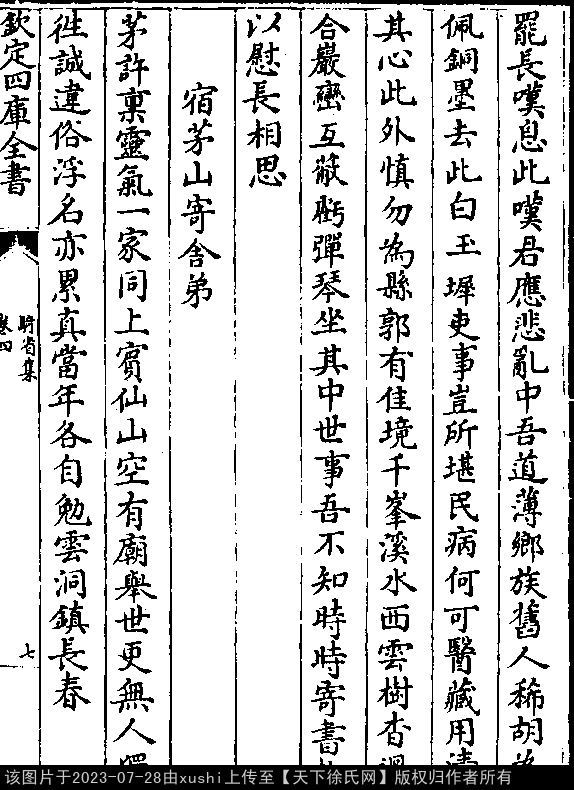 罷長嘆息此嘆君應悲亂中吾道薄鄉族舊人稀胡
佩銅墨去此白玉墀吏事豈所堪民病何可醫藏用清
其心此外慎勿為縣郭有佳境千峯溪水西雲樹杳迴
合巖巒互蔽虧彈琴坐其中世事吾不知時時寄書
以慰長相思
宿茅山寄舍弟
茅許稟靈氣一家同上賓仙山空有廟舉世更無人
徃誠違俗浮名亦累真當年各自勉雲洞鎮長春
欽定四庫全書
騎省集
卷四
七
该图片于2023-07-28由xushi上传至【天下徐氏网】版权归作者所有